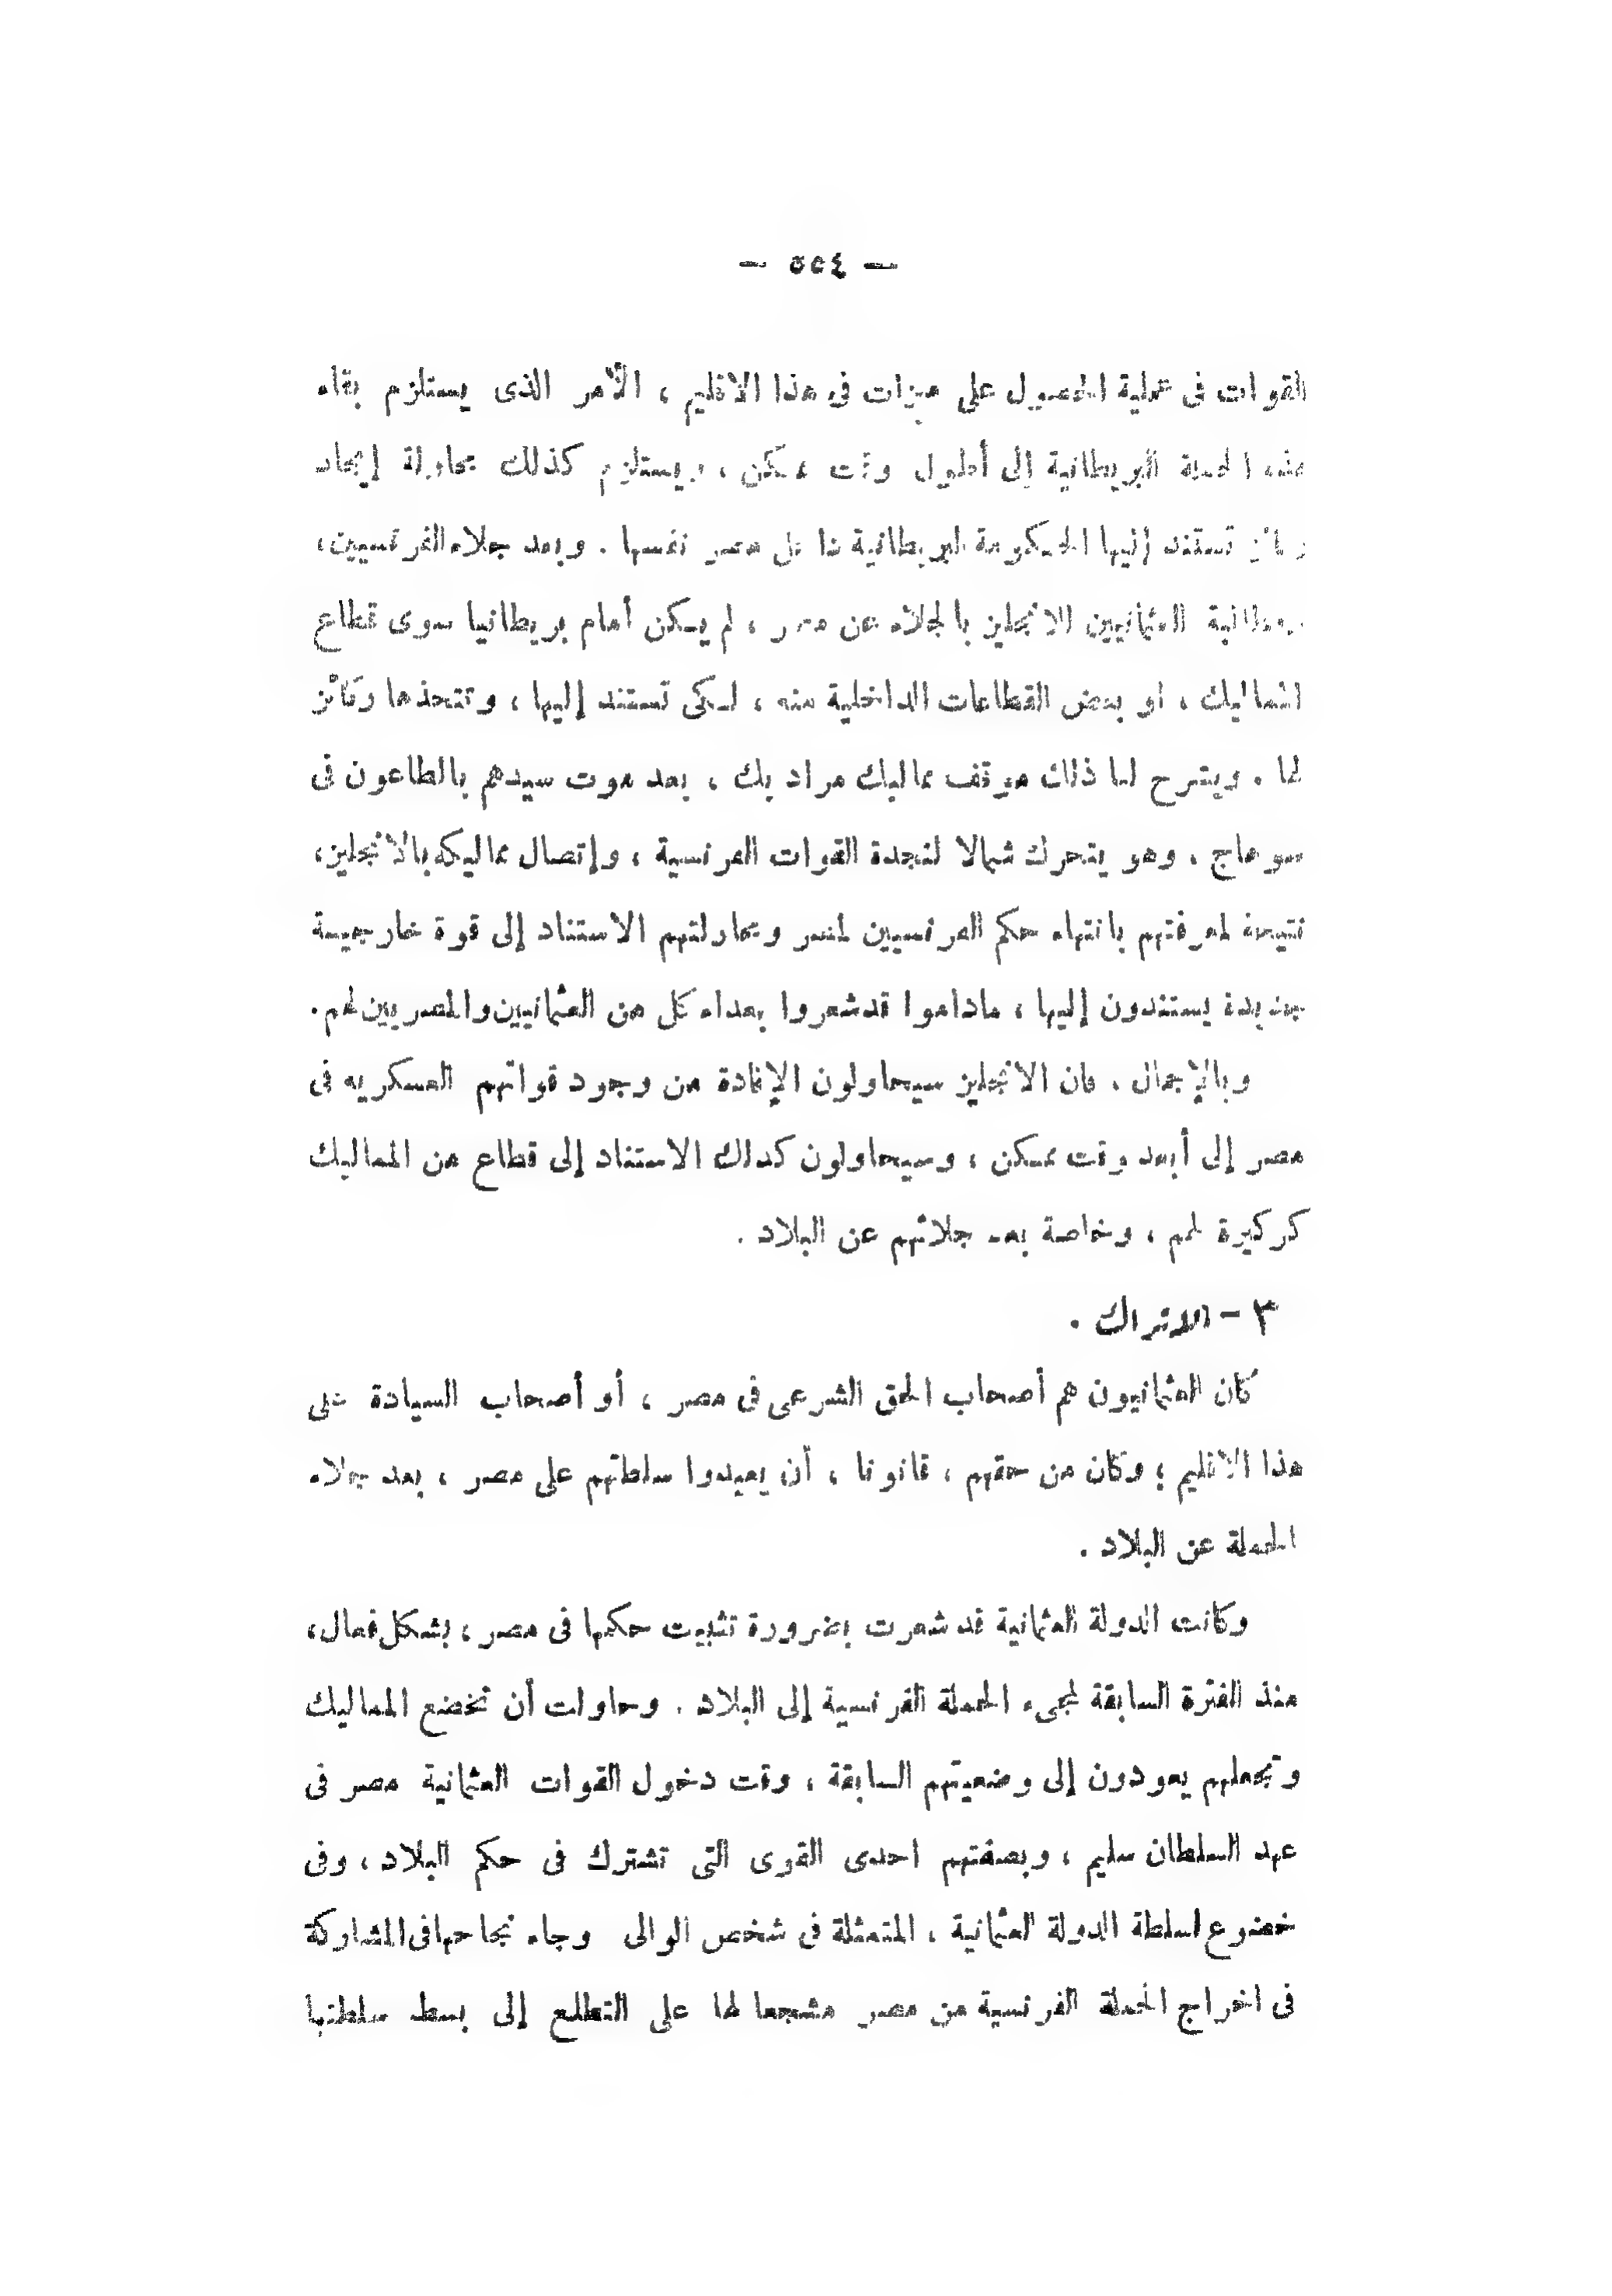 — ٥٥٤ —
القوات فى عملية الحصول على ميزات فى هذا الاقليم ، الأمر الذى يستلزم بقاء
هذه الحملة البريطانية إلى أطول وقت ممكن ، ويستلزم كذلك محاولة إيجاد
ركائز تستند إليها الحكومة البريطانية داخل مصر نفسها . وبعد جلاء الفرنسيين ،
ومطالبة العثمانيين الانجليز بالجلاء عن مصر ، لم يكن أمام بريطانيا سوى قطاع
المماليك ، او بعض القطاعات الداخلية منه ، لكى تستند إليها ، وتتخذها ركائز
لها . ويشرح لنا ذلك موقف مماليك مراد بك ، بعد موت سيدهم بالطاعون فى
سوهاج ، وهو يتحرك شمالا لنجدة القوات الفرنسية ، وإتصال مماليكه بالانجليز ،
نتيجة لمعرفتهم بانتهاء حكم الفرنسيين لمصر ومحاولتهم الاستناد إلى قوة خارجية
جديدة يستندون إليها ، ماداموا قد شعروا بعداء كل من العثمانيين والمصريين لهم .
وبالإجمال ، فان الانجليز سيحاولون الإفادة من وجود قواتهم العسكريه فى
مصر إلى أبعد وقت ممكن ، وسيحاولون كذلك الاستناد إلى قطاع من المماليك
كركيزة لهم ، وخاصة بعد جلائهم عن البلاد .
٣ – الاتراك .
كان العثمانيون هم أصحاب الحق الشرعى فى مصر ، أو أصحاب السيادة على
هذا الاقليم ؛ وكان من حقهم ، قانونا ، أن يعيدوا سلطاتهم على مصر ، بعد جلاء
الحملة عن البلاد .
وكانت الدولة العثمانية قد شعرت بضرورة تثبيت حكمها فى مصر ، بشكل فعال ،
منذ الفترة السابقة لمجىء الحملة الفرنسية إلى البلاد . وحاولت أن تخضع المماليك
وتجعلهم يعودون إلى وضعيتهم السابقة ، وقت دخول القوات العثمانية مصر فى
عهد السلطان سليم ، وبصفتهم احدى القوى التى تشترك فى حكم البلاد ، وفى
خضوع لسلطة الدولة العثمانية ، المتمثلة فى شخص الوالى وجاء نجاحها فى المشاركة
فى اخراج الحملة الفرنسية من مصر مشجعا لها على التطلع إلى بسط سلطتها